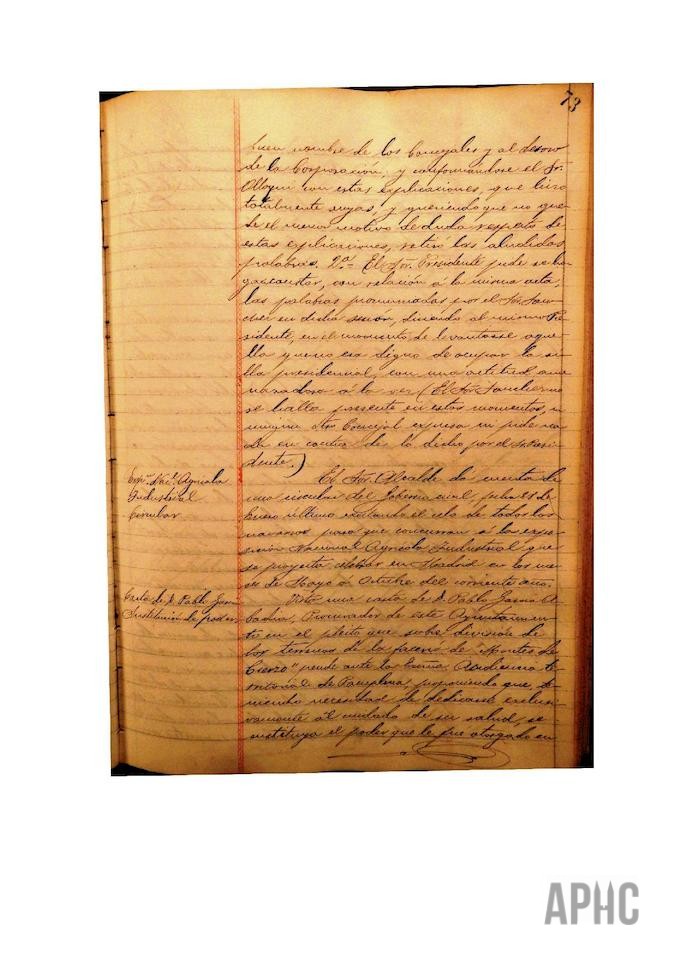 73
buen nombre de los Concejales y al decoro
de la Corporación; y conformandose el Sr.
Olloqui con estas esplicaciones, que hizo
totalmente suyas, y queriendo que no que-
de el menor motivo de duda respecto de
estas esplicaciones, retiró las aludidas
palabras. 2ª= El Sor. Presidente pide se ha-
ga constar, con relación á la misma acta,
las palabras pronunciadas por el Sor. San-
chez en dicha sesion, diciendo al mismo Pre-
sidente, en el momento de levantarse aque-
lla que no era digno de ocupar la si-
lla presidencial, con una actitud ame-
nazadora á la vez (El Sor. Sanchez no
se halla presente en estos momentos, ni
ningun otro Concejal expresa ni pide na-
da en contra de lo dicho por el Sr. Presi-
dente.)
Expn. Nacl. Agricola
Industrial
Circular
El Sor. Alcalde da cuenta de
una circular del Gobierno civil fecha de
Enero último excitando el celo de todos los
navarros para que concurran á la expo-
sición Nacional Agricola Industrial que
se proyecta celebrar en Madrid en los me-
ses de Mayo á Octubre del corriente año.
Carta de D. Pablo
Sustitución de poder
Vista una carta de D. Pablo
Procurador de este Ayuntamien-
to en el pleito que sobre división de
los terrenos de la faceria de Montes de
Cierzo" pende ante la Excma. Audiencia te-
rritorial de Pamplona, proponiendo que, te-
niendo necesidad de dedicarse exclusi-
vamente al cuidado de su salud, se
sustituya el poder que le fue otorgado en
APHC